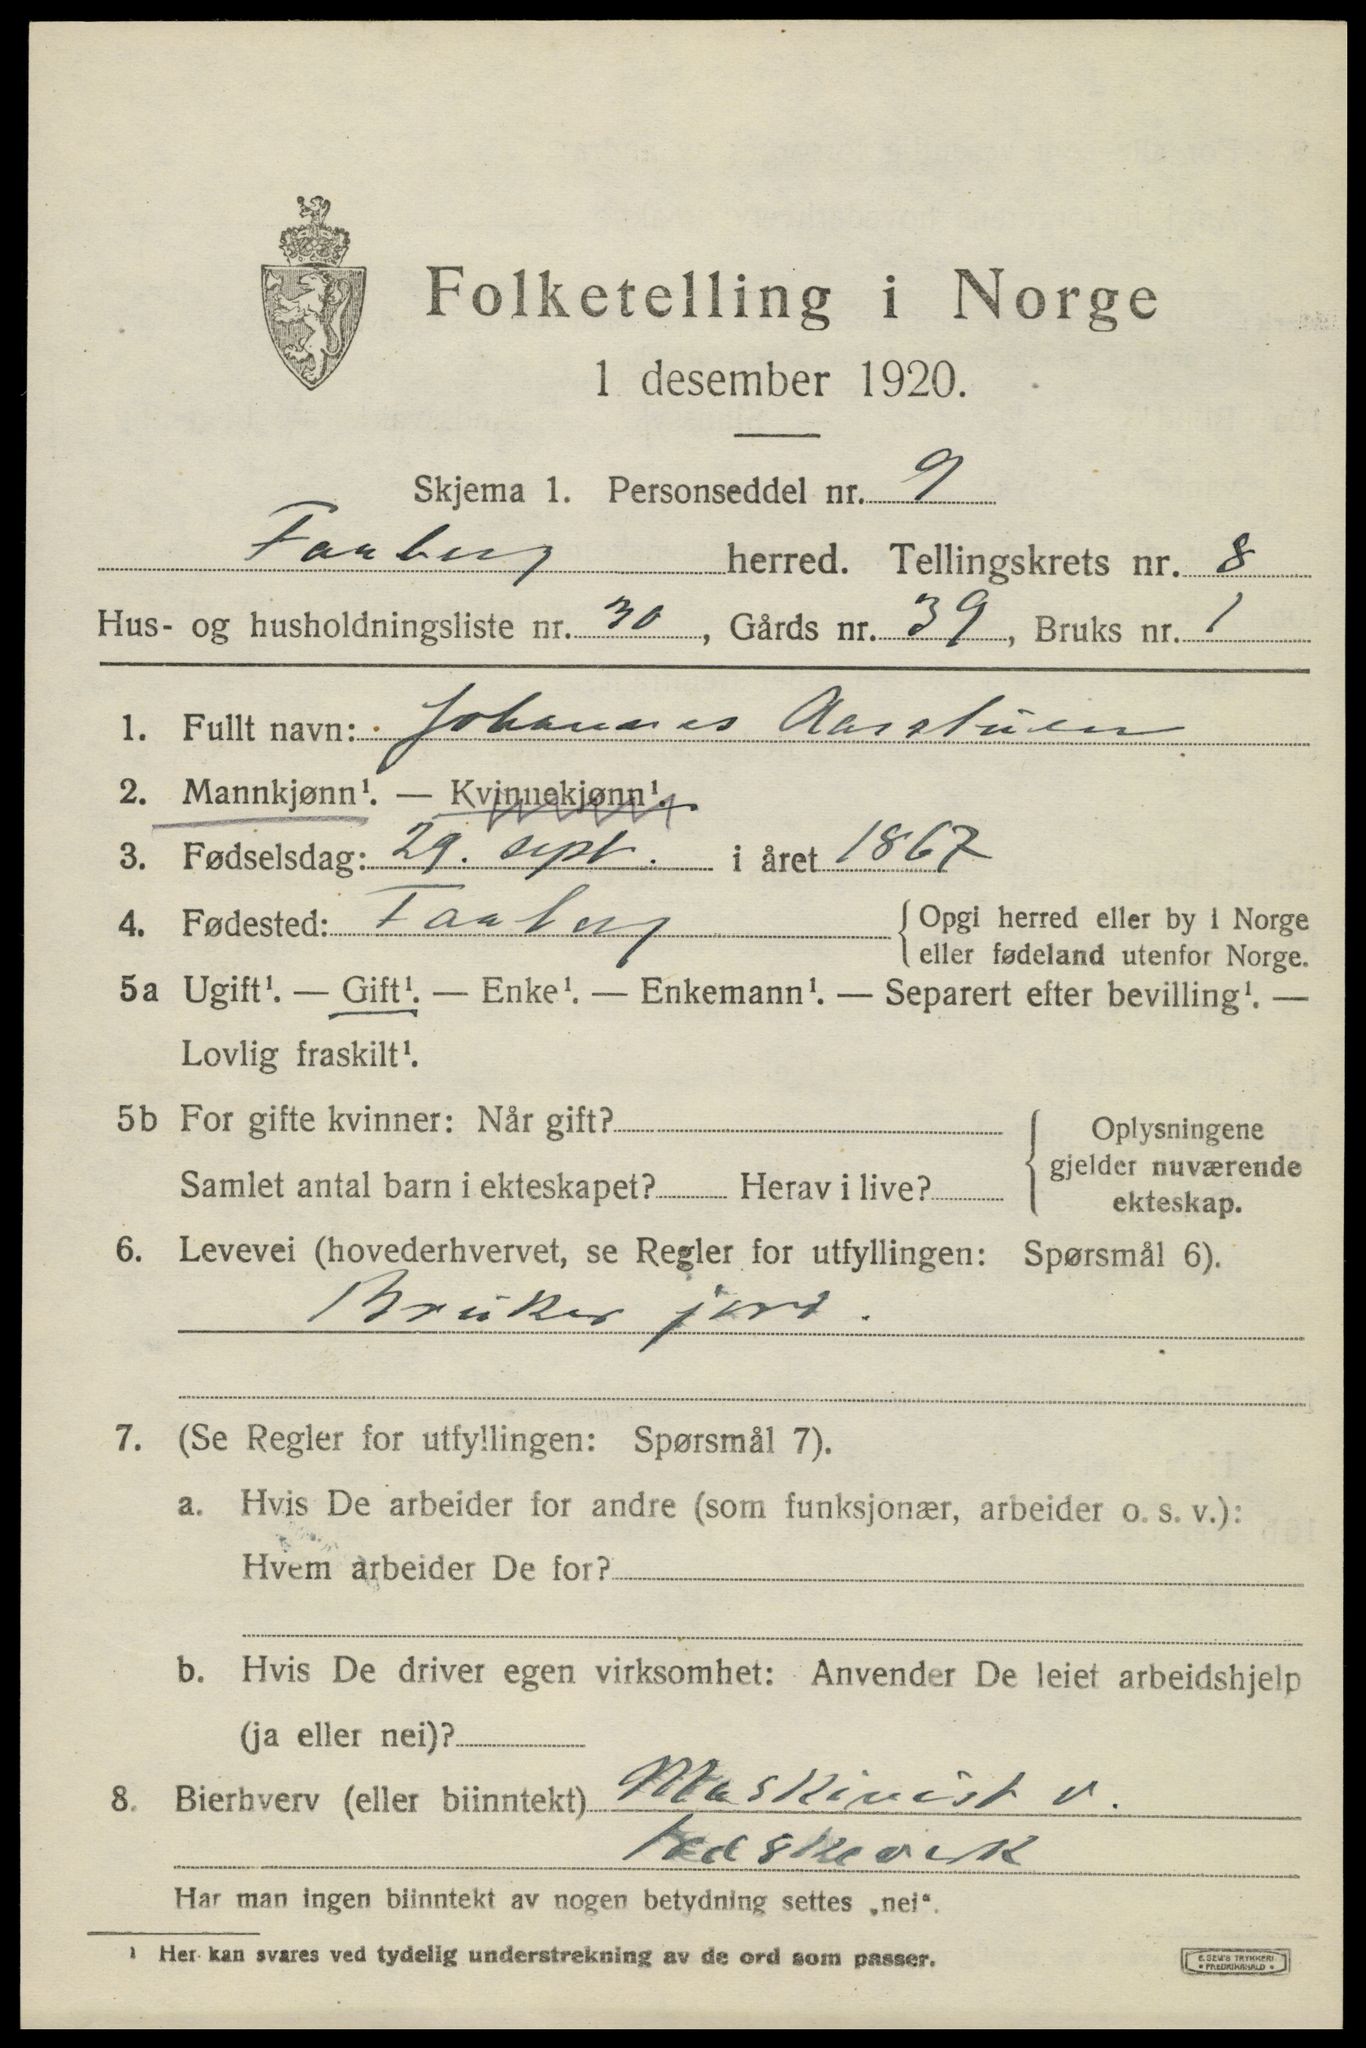 Folketelling i Norge
1 desember 1920.
Skjema 1. Personseddel nr. 9
Faaberg herred. Tellingskrets nr. 8
Hus- og husholdningsliste nr. 30, Gårds nr. 39, Bruks nr. 1
1. Fullt navn: Johannes Aarstuen
2. Mannkjønn¹. — Kvinnekjønn¹.
3. Fødselsdag: 29. sept. i året 1867
4. Fødested: Faaberg { Opgi herred eller by i Norge
eller fødeland utenfor Norge.
5a Ugift¹. — Gift¹. — Enke¹. — Enkemann¹. — Separert efter bevilling¹. —
Lovlig fraskilt¹.
5b For gifte kvinner: Når gift? { Oplysningene
gjelder nuværende
Samlet antal barn i ekteskapet? Herav i live?
ekteskap.
6. Levevei (hovederhvervet, se Regler for utfyllingen: Spørsmål 6).
Bruker jord.
7. (Se Regler for utfyllingen: Spørsmål 7).
a. Hvis De arbeider for andre (som funksjonær, arbeider o. s. v.):
Hvem arbeider De for?
b. Hvis De driver egen virksomhet: Anvender De leiet arbeidshjelp
(ja eller nei)?
8. Bierhverv (eller biinntekt) Maskinist v.
Har man ingen biinntekt av nogen betydning settes „nei“.
¹ Her kan svares ved tydelig understrekning av de ord som passer.
E. SEM'S TRYKKERI
• FREDRIKSHALD •